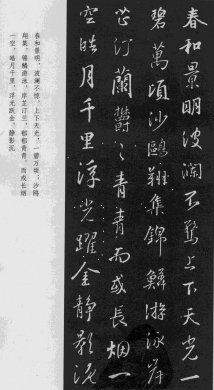 春和景明波瀾不驚上下天光一
碧萬頃沙鷗翔集錦鱗游泳岸
芷汀蘭鬱〻青青而或長烟一
空皓月千里浮光躍金静影沉
春和景明，波澜不惊，上下天光，一碧万顷；沙鸥
翔集，锦鳞游泳，岸芷汀兰，郁郁青青。而或长烟
一空，皓月千里，浮光跃金，静影沉